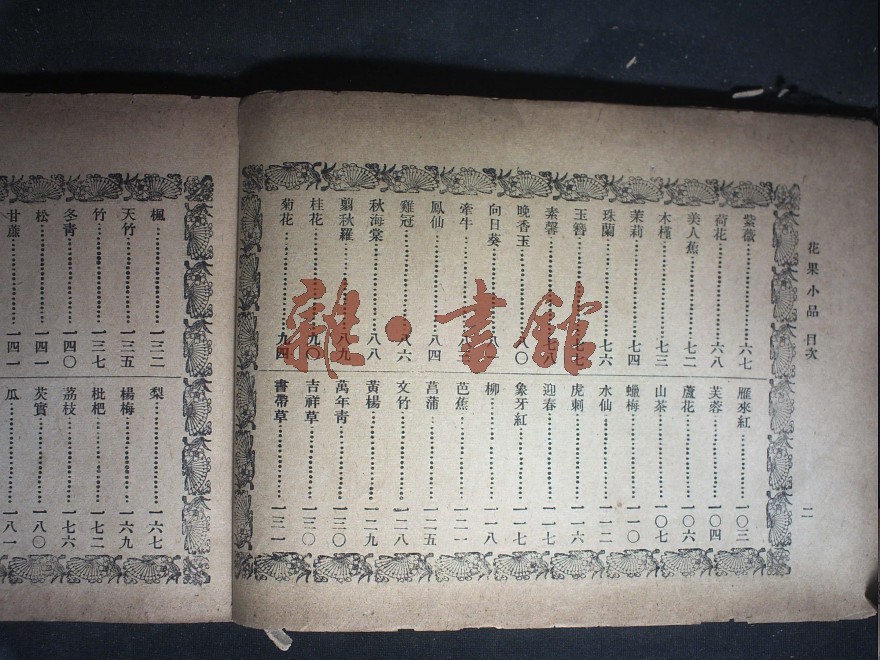 花果小品 目次
二
紫薇……六七
荷花……六八
美人蕉……七二
木槿……七三
茉莉……七四
珠蘭……七六
玉簪……七七
素馨……七八
晚香玉……八〇
向日葵……
牽牛……
鳳仙……八四
雞冠……八六
秋海棠……八八
翦秋羅……八九
桂花……九〇
菊花……九四
雁來紅……一〇三
芙蓉……一〇四
蘆花……一〇六
山茶……一〇七
蠟梅……一一〇
水仙……一一二
虎刺……一一六
迎春……一一七
象牙紅……一一七
柳……一一八
芭蕉……一二一
菖蒲……一二五
文竹……一二八
黃楊……一二九
萬年青……一三〇
吉祥草……一三〇
書帶草……一三一
楓……一三二
天竹……一三五
竹……一三七
冬青……一四〇
松……一四一
甘蔗……一四一
梨……一六七
楊梅……一六九
枇杷……一七二
荔枝……一七六
芡實……一八〇
瓜……一八一
雜·書館